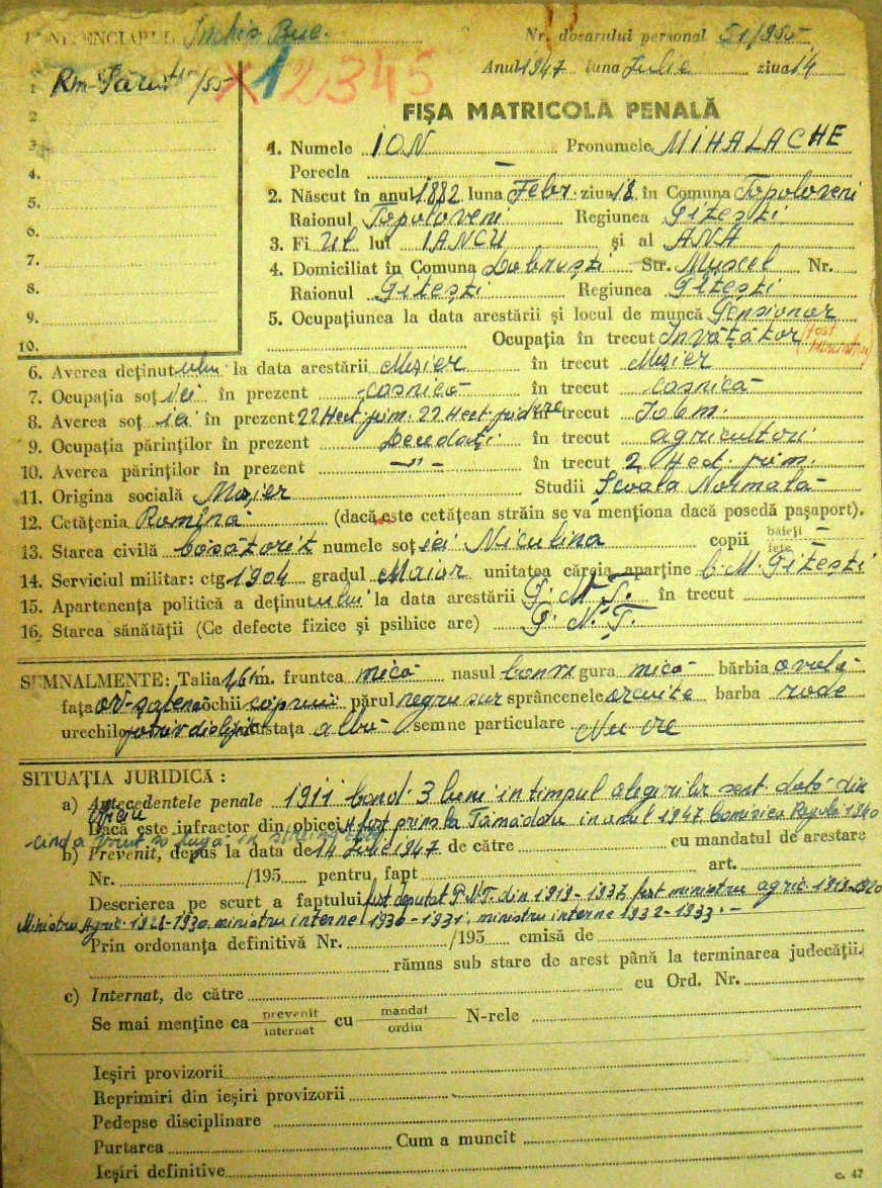 PENITENCIARUL Închis Buc. Nr. dosarului personal 51/955
1 Rm-Sărat /55 X12345 Anul 1947 luna Iulie ziua 14
2
3.
4.
5.
6.
7.
8.
9.
10.
FIȘA MATRICOLĂ PENALĂ
1. Numele ION Pronumele MIHALACHE
Porecla —
2. Născut în anul 1882 luna Febr. ziua 18 în Comuna Topoloveni
Raionul Topoloveni Regiunea Pitești
3. Fi ul lui IANCU și al ANA
4. Domiciliat în Comuna Dobrești Str. Muscel Nr.
Raionul Pitești Regiunea Pitești
5. Ocupațiunea la data arestării și locul de muncă Pensionar
Ocupația în trecut Învățător fost
6. Averea deținut ului la data arestării Moșier în trecut Moșier
7. Ocupația soț iei în prezent casnică în trecut casnică
8. Averea soț iei în prezent 22 Hect. păm. 22 Hect. pădure în trecut Idem.
9. Ocupația părinților în prezent Decedați în trecut agricultori
10. Averea părinților în prezent —"— în trecut 2 Hect. păm.
11. Origina socială Moșier Studii Școala Normală
12. Cetățenia Romînă (dacă este cetățean străin se va menționa dacă posedă pașaport).
13. Starea civilă căsătorit numele soț iei Niculina copii băieți — fete —
14. Serviciul militar: ctg 1904 gradul Maior unitatea căreia aparține C.M. Pitești
15. Apartenența politică a deținut ului la data arestării P.N.Ț. în trecut
16. Starea sănătății (Ce defecte fizice și psihice are) P.N.Ț.
SEMNALMENTE: Talia 1,61 m. fruntea mică nasul gura mică bărbia ovală
fața ov. șatenă ochii căprui părul negru sur sprâncenele arcuite barba rade
urechile potriv. dislipite statața albă semne particulare Nu are
SITUAȚIA JURIDICĂ:
a) Antecedentele penale 1911 cond. 3 luni în timpul alegerilor sent. dată din
Dacă este infractor din obicei A fost prins la Tămădău în anul 1947 Comisia Regală 1940
când a vrut să fugă în
b) Prevenit, depus la data de 14 Iulie 1947 de către cu mandatul de arestare
Nr. /195 pentru fapt art.
Descrierea pe scurt a faptului fost deputat P.N.Ț. din 1919-1937 fost ministru agric. 1919-1920
Ministru Agric. 1928-1930 ministru interne 1930-1931. ministru interne 1932-1933.-
Prin ordonanța definitivă Nr. /195 emisă de
rămas sub stare de arest până la terminarea judecății.
c) Internat, de către cu Ord. Nr.
Se mai menține ca prevenit internat cu mandat ordin N-rele
Ieșiri provizorii
Reprimiri din ieșiri provizorii
Pedepse disciplinare
Purtarea Cum a muncit
Ieșiri definitive
c. 47